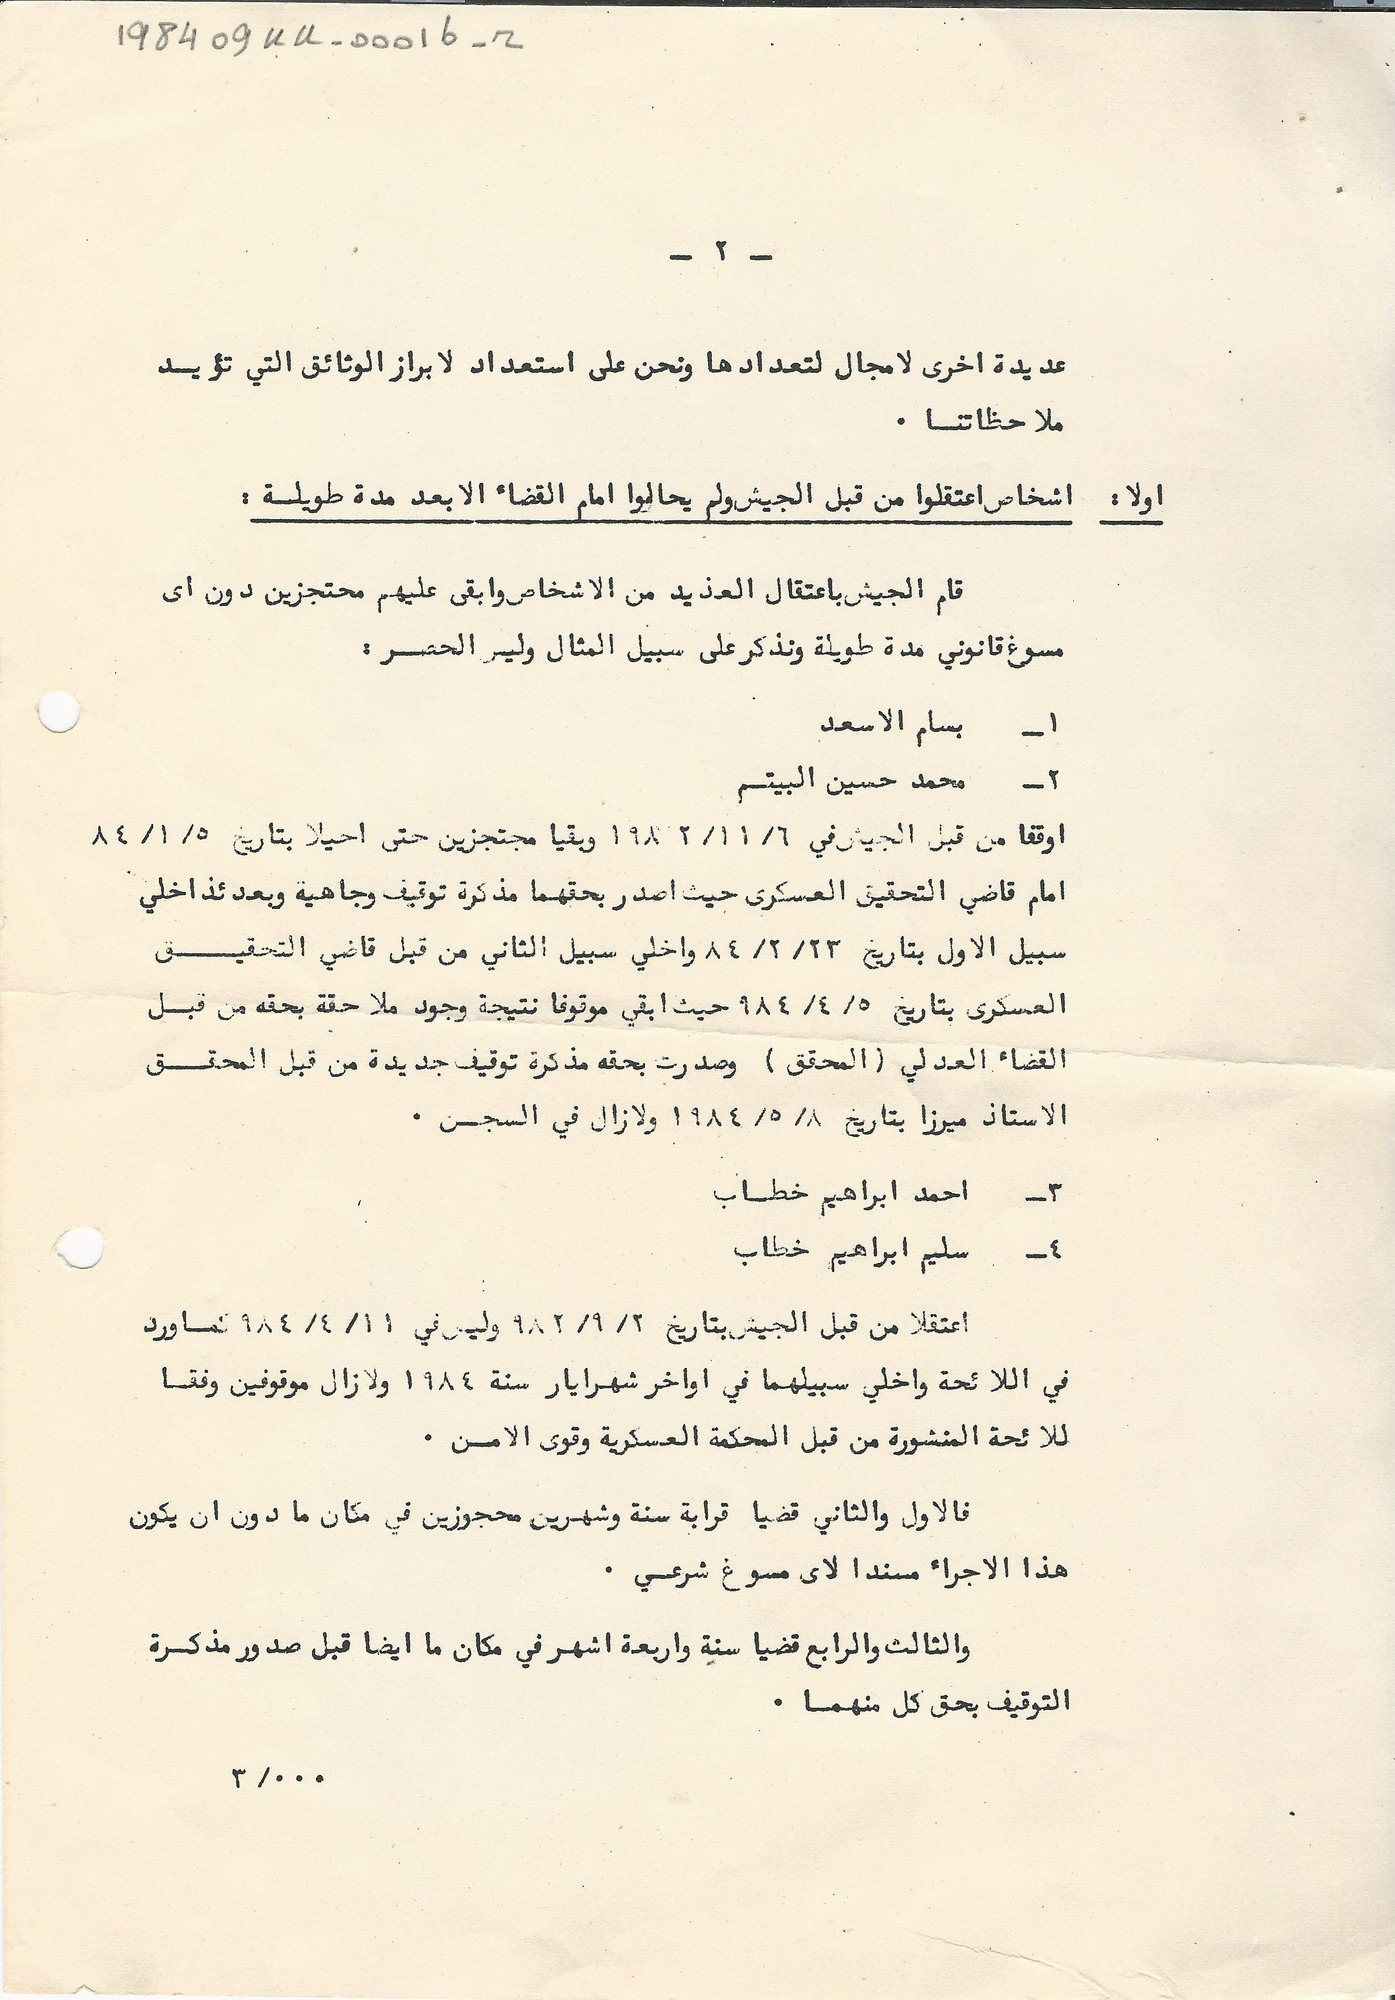 198409UU-00016-2
– ٢ –
عديدة اخرى لامجال لتعدادها ونحن على استعداد لابراز الوثائق التي تؤيـــد
ملاحظاتنــا ٠
اولا : اشخاص اعتقلوا من قبل الجيش ولم يحالوا امام القضاء الا بعد مدة طويلــة :
قام الجيش باعتقال العديد من الاشخاص وابقى عليهم محتجزين دون اى
مسوغ قانوني مدة طويلة ونذكر على سبيل المثال وليس الحصــر :
١ــ بسام الاسعد
٢ــ محمد حسين البيتــم
اوقفا من قبل الجيش في ٦/ ١١/ ١٩٨٢ وبقيا محتجزين حتى احيلا بتاريخ ٥/ ١/ ٨٤
امام قاضي التحقيق العسكرى حيث اصدر بحقهما مذكرة توقيف وجاهية وبعدئذ اخلي
سبيل الاول بتاريخ ٢٣/ ٢/ ٨٤ واخلي سبيل الثاني من قبل قاضي التحقيـــــق
العسكرى بتاريخ ٥/ ٤/ ٩٨٤ حيث ابقي موقوفا نتيجة وجود ملاحقة بحقه من قبــل
القضاء العدلي ( المحقق ) وصدرت بحقه مذكرة توقيف جديدة من قبل المحقــــق
الاستاذ ميرزا بتاريخ ٨/ ٥/ ١٩٨٤ ولازال في السجــن ٠
٣ــ احمد ابراهيم خطــاب
٤ــ سليم ابراهيم خطاب
اعتقلا من قبل الجيش بتاريخ ٢/ ٩/ ٩٨٢ وليس في ١١/ ٤/ ٩٨٤ كمــا ورد
في اللائحة واخلي سبيلهما في اواخر شهر ايار سنة ١٩٨٤ ولازال موقوفين وفقــا
للائحة المنشورة من قبل المحكمة العسكرية وقوى الامــن ٠
فالاول والثاني قضيا قرابة سنة وشهرين محجوزين في مكان ما دون ان يكون
هذا الاجراء مسندا لاى مسوغ شرعــي ٠
والثالث والرابع قضيا سنة واربعة اشهر في مكان ما ايضا قبل صدور مذكــرة
التوقيف بحق كل منهمــا ٠
٠٠٠/ ٣